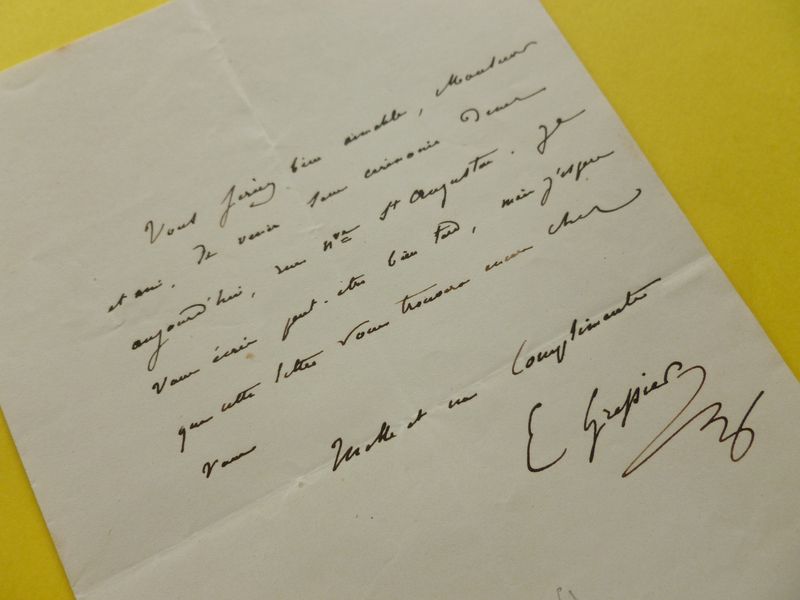 Vous seriez bien aimable, Monsieur
et ami, de venir sans cérémonie Diner
aujourd'hui, rue Nve St Augustin. Je
vous écris peut-être bien tard, mais j'espère
que cette lettre vous trouvera encore chez
vous
Mille et un Compliments
E